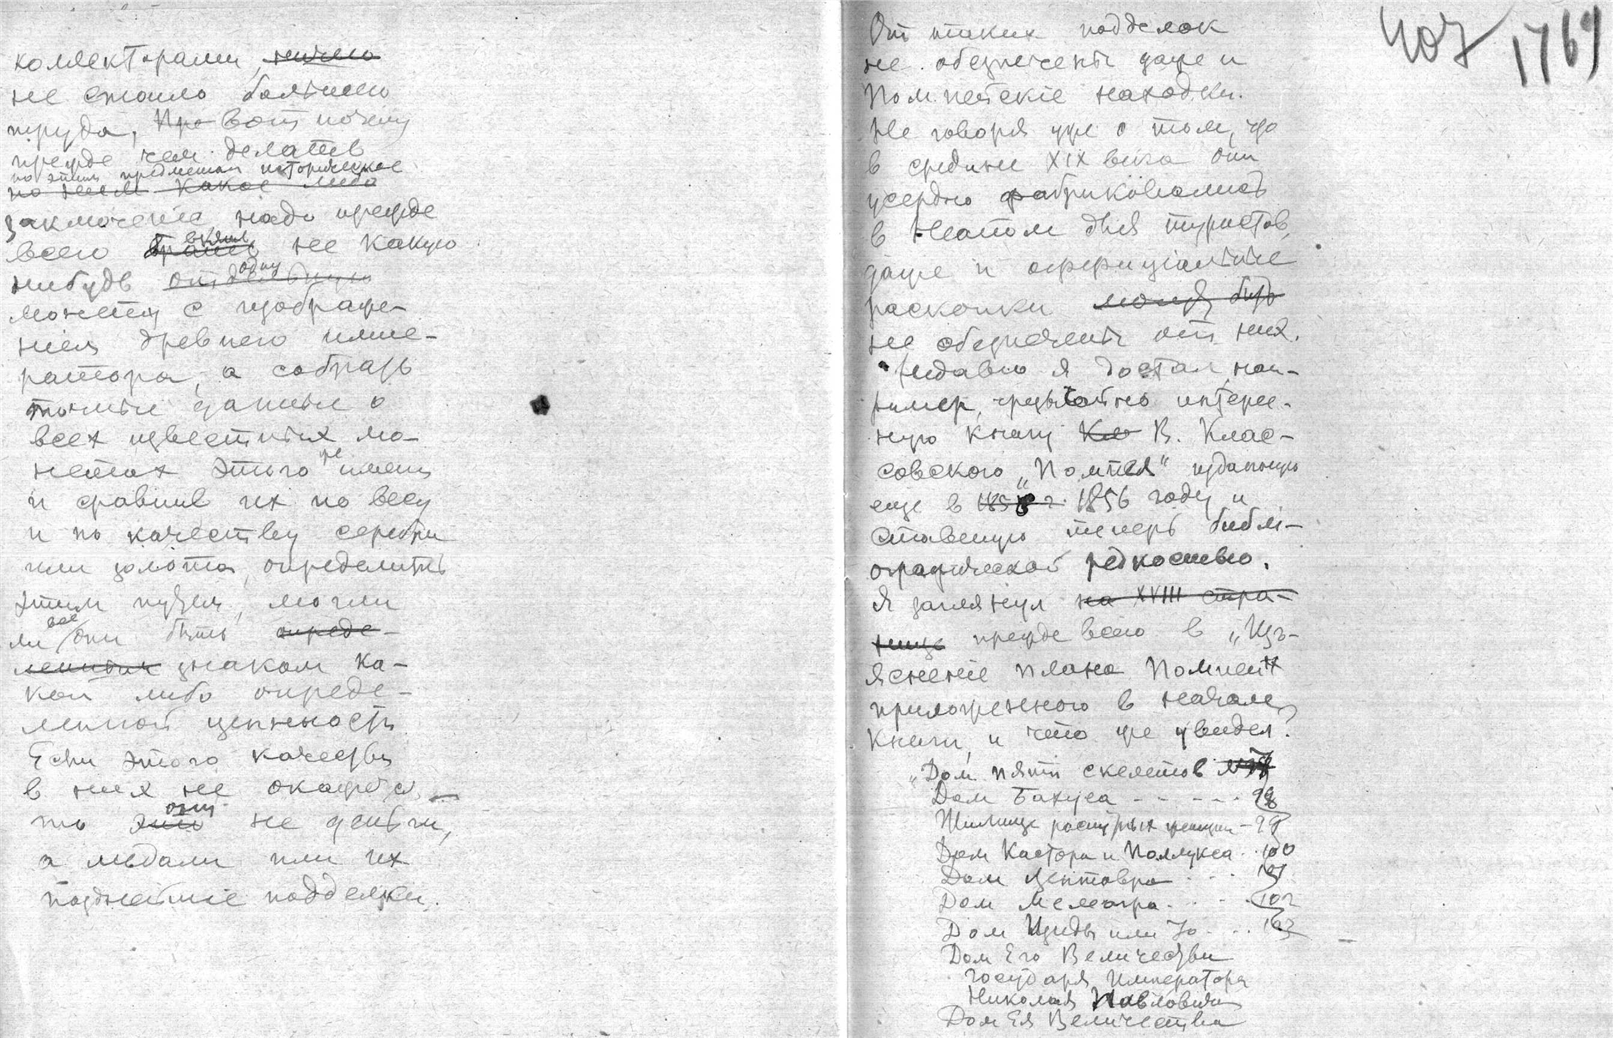 коллекторами ничего
не стоило большого
труда, Про Вот почему
прежде чем делать
по этим предметам историческое
по ним какое либо
заключение надо прежде
всего брать взять не какую
нибудь отдельную одну
монету с изображе-
нием древнего импе-
ратора, а собрать
точные данные о
всех известных мо-
нетах этого же имени
и сравнив их по весу
и по качеству серебра
или золота, определить
этим путем, могли
ли все они быть опреде-
ленным знаком ка-
кой либо опреде-
ленной ценности
Если этого качества
в них не окажется, —
то это они не деньги,
а медали или их
позднейшие подделки.
407 1769
От таких подделок
не обезпечены даже и
Помпейскіе находки.
Не говоря уже о том, что
в средине XIX века они
усердно фабриковались
в Неаполе для туристов,
даже и оффициальные
раскопки могут быть
не обезпечены от них.
Недавно я достал, нап-
ример, чрезвычайно интерес-
ную книгу Кла В. Клас-
совского „Помпея" изданную
еще в 1858 г. 1856 году и
ставшую теперь библі-
ографической редкостью.
Я заглянул на XVIII стра-
нице прежде всего в „Изъ-
ясненіе плана Помпеи"
приложенного в начале
книги, и что же увидел?
„Дом пяти скелетов № 97
Дом Бахуса - - - - - 98
Жилище развратных женщин - 99
Дом Кастора и Поллукса . . 100
Дом Центавра - . . . 101
Дом Мелеагра . - . . 102
Дом Изиды или Ио - . . . 103
Дом Его Величества
Государя Императора
Николая Павловича
Дом Ея Величества